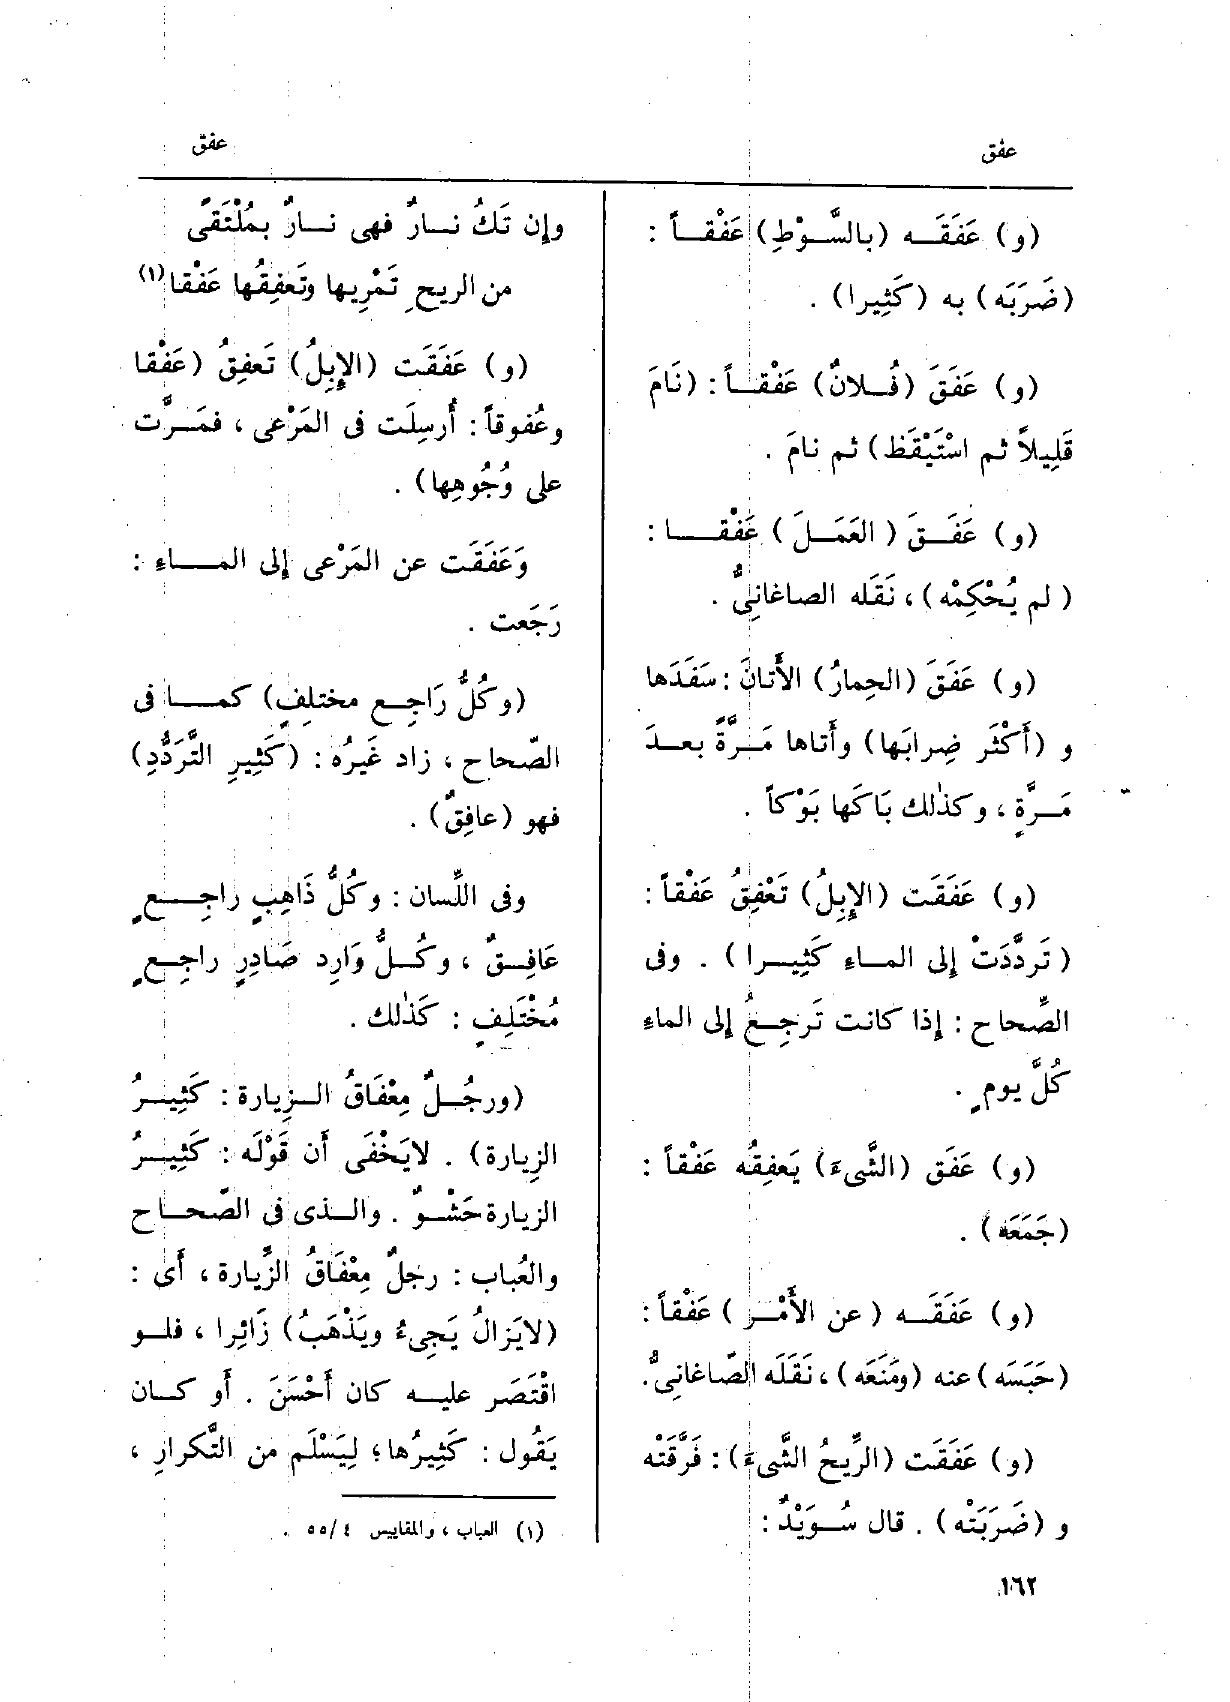 عفق
عفق
(و) عَفَقَـه (بالسَّوْطِ) عَفْقـاً :
(ضَرَبَه) به (كَثِيرا) .
(و) عَفَقَ (فُـلانٌ) عَفْقـاً : (نَامَ
قَلِيلاً ثم اسْتَيْقَظ) ثم نامَ .
(و) عَفَـقَ (العَمَـلَ) عَفْقـا :
(لم يُحْكِمْه) ، نَقَله الصاغانىُّ .
(و) عَفَقَ (الحِمارُ) الأَتانَ : سَفَدَها
و (أَكْثَر ضِرابَها) وأَتاها مَـرَّةً بعـدَ
مَـرَّةٍ ، وكذٰلك بَاكَها بَوْكاً .
(و) عَفَقَت (الإِبِلُ) تَعْفِقُ عَفْقاً :
(تَردَّدَتْ إلى المـاءِ كَثِيـرا) . وفى
الصِّحاح : إِذا كانت تَرجِـعُ إلى الماءِ
كُلَّ يومٍ .
(و) عَفَق (الشَّىءَ) يَعفِقُه عَفْقاً :
(جَمَعَه) .
(و) عَفَقَـه (عن الأَمْـرِ) عَفْقاً :
(حَبَسَه) عنه (ومَنَعَه) ، نَقَلَه الصّاغانىُّ .
(و) عَفَقَت (الرِّيحُ الشَّىءَ) : فَرَّقَتْه
و (ضَرَبَتْه) . قال سُـوَيْدٌ :
وإن تَكُ نـارٌ فهى نـارٌ بمُلْتَقًى
من الريحِ تَمْرِيها وتَعفِقُها عَفْقا (١)
(و) عَفَقَت (الإِبِلُ) تَعفِقُ (عَفْقا
وعُفوقاً : أُرسِلَت فى المَرْعى ، فمَـرَّت
على وُجُوهِها) .
وَعَفَقَت عن المَرْعى إلى المـاءِ :
رَجَعت .
(وكُلُّ رَاجِـعٍ مختلِفٍ) كمـا فى
الصّحاح ، زاد غَيرُه : (كَثِيرِ التَّرَدُّدِ)
فهو (عافِقٌ) .
وفى اللِّسان : وكُلُّ ذَاهِبٍ راجِـعٍ
عَافِـقٌ ، وكُـلُّ وَارِد صَادِرٍ راجِـعٍ
مُخْتَلِفٍ : كَذٰلك .
(ورجُـلٌ مِعْفَاقُ الـزِيارة : كَثِيـرُ
الزِيارة) . لايَخْفَى أَن قَوْلَه : كَثِيـرُ
الزيارة حَشْـوٌ . والـذى فى الصّحـاح
والعُباب : رجلٌ مِعْفَاقُ الزِّيارة ، أَى :
(لايَزالُ يَجِىءُ ويَذْهَبُ) زَائِرا ، فلـو
اقْتَصَر عليـه كان أَحْسَنَ . أَو كـان
يَقُول : كَثِيرُها؛ لِيَسْلَم من التَّكرارِ ،
(١) العباب ، والمقاييس ٤/٥٥ .
١٦٢